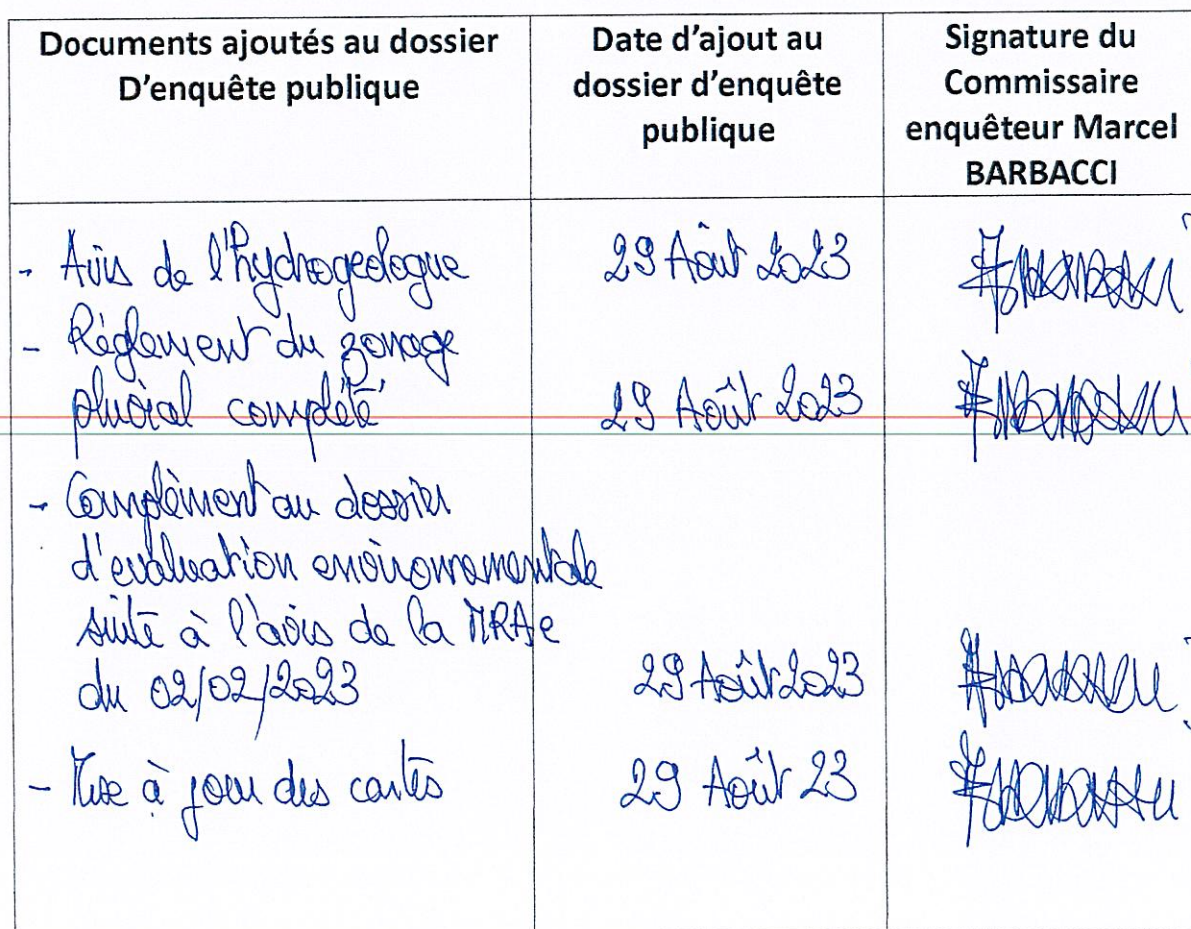 Documents ajoutés au dossier
D'enquête publique
Date d'ajout au
dossier d'enquête
publique
Signature du
Commissaire
enquêteur Marcel
BARBACCI
- Avis de l'hydrogeologue
29 Août 2023
- Règlement du zonage
pluvial complété
29 Août 2023
- Complèment au dossier
d'evaluation environnementale
suite à l'avis de la MRAe
du 02/02/2023
29 Août 2023
- Mise à jour des cartes
29 Août 23